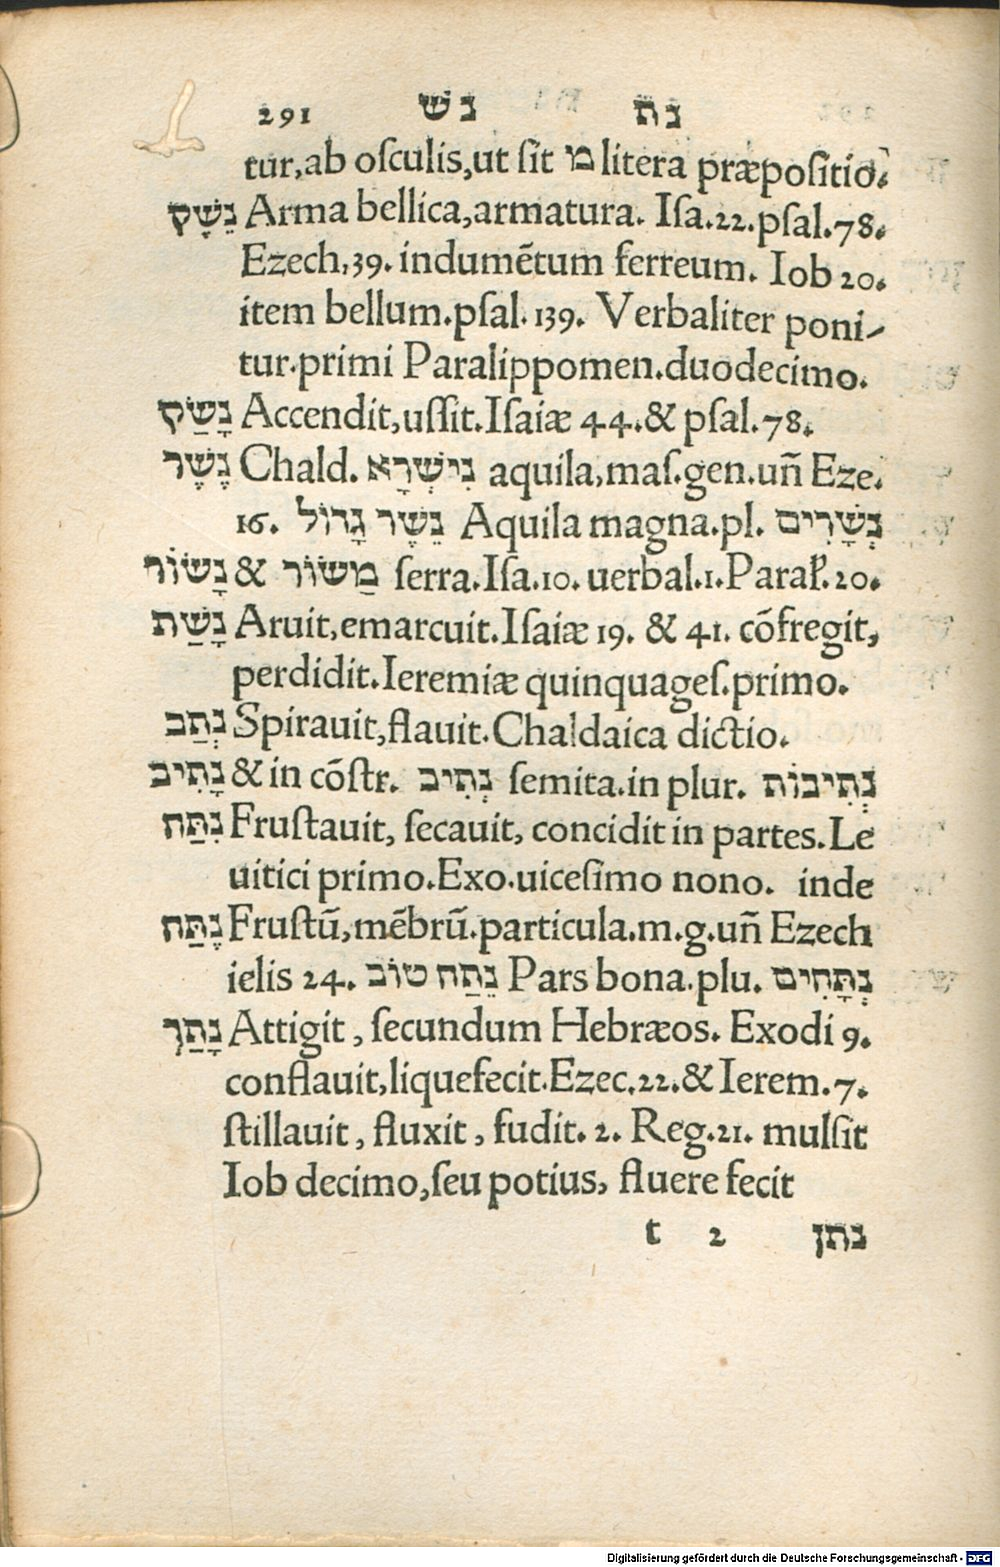 291 נש נת
tur,ab oſculis,ut ſit מ litera præpoſitio.
נֵשֶׁק Arma bellica,armatura. Iſa.22.pſal.78.
Ezech.39. indumētum ferreum. Iob 20.
item bellum.pſal.139. Verbaliter poni-
tur.primi Paralippomen.duodecimo.
נָשַׂק Accendit,uſſit.Iſaiæ 44.& pſal.78.
נֶשֶׁר Chald. נִישְׁרָא aquila,maſ.gen.un̄ Eze.
16. נֵשֶׁר גָּדוֹל Aquila magna.pl. נְשָׁרִים
נָשׂוֹר & מַשּׂוֹר ſerra.Iſa.10. uerbal.1.Paral̓.20.
נָשַׁת Aruit,emarcuit.Iſaiæ 19. & 41. cōfregit,
perdidit.Ieremiæ quinquageſ.primo.
נְתַב Spirauit,flauit.Chaldaica dictio.
נָתִיב & in cōſtr. נְתִיב ſemita.in plur. נְתִיבוֹת
נִתַּח Fruſtauit, ſecauit, concidit in partes.Le
uitici primo.Exo.uiceſimo nono. inde
נֶתַּח Fruſtū,mēbrū.particula.m.g.un̄ Ezech
ielis 24. נֵתַח טוֹב Pars bona.plu. נְתָּחִים
נָתַךְ Attigit, ſecundum Hebræos. Exodi 9.
conflauit,liquefecit.Ezec.22.& Ierem.7.
ſtillauit, fluxit, fudit. 2. Reg.21. mulſit
Iob decimo,ſeu potius, fluere fecit
t 2 נתן
Digitalisierung gefördert durch die Deutsche Forschungsgemeinschaft - DFG